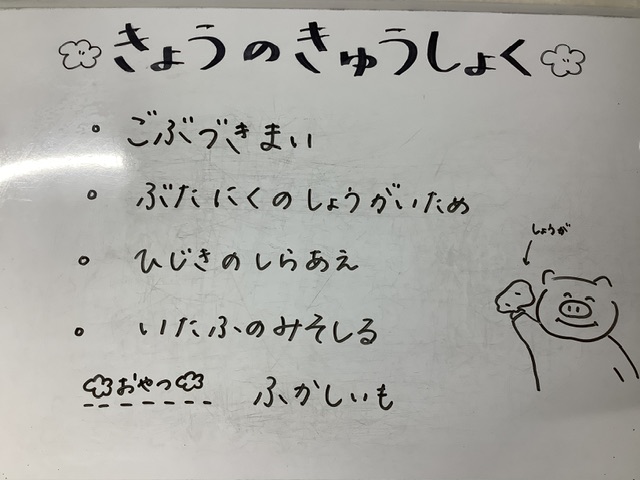 きょうのきゅうしょく
。ごぶづきまい
。ぶたにくのしょうがいため
しょうが
。ひじきのしらあえ
。いたふのみそしる
おやつ ふかしいも